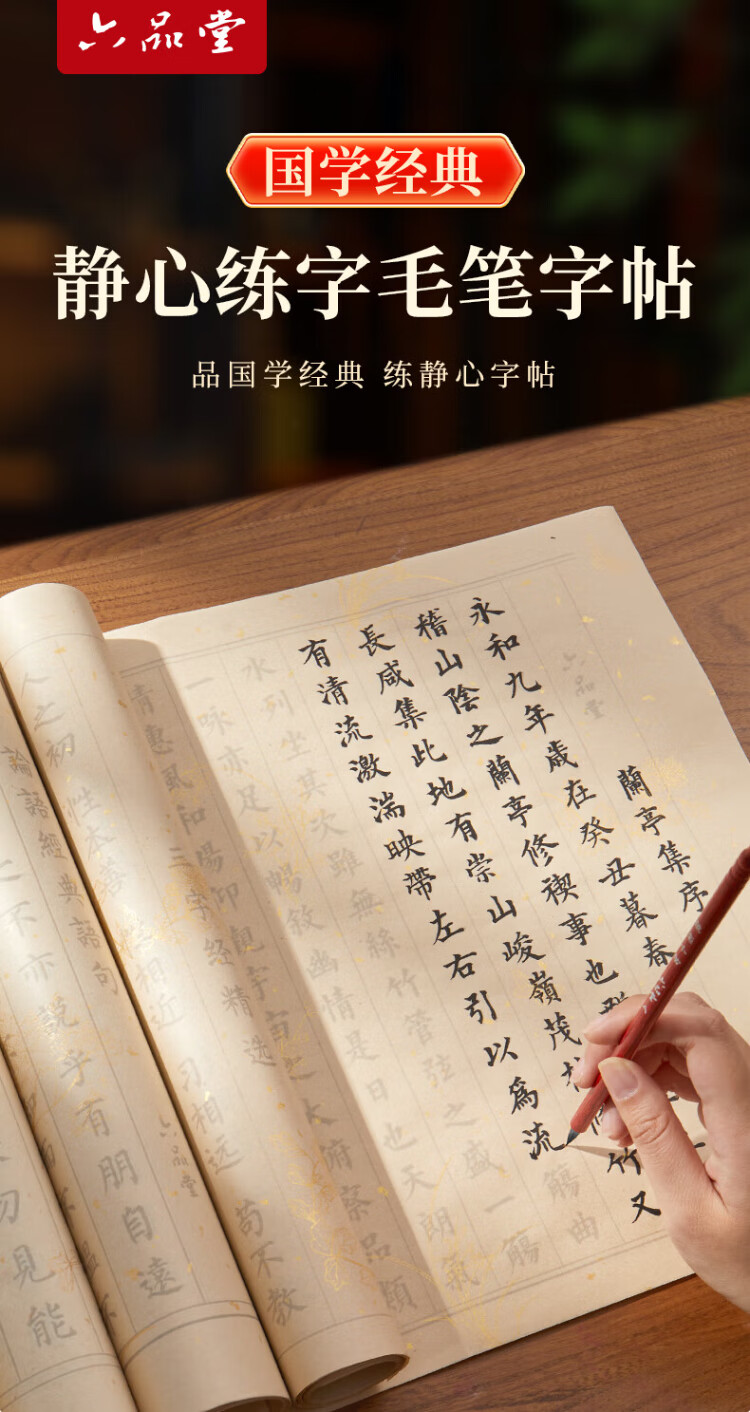 六品堂
国学经典
静心练字毛笔字帖
品国学经典 练静心字帖
蘭亭集序
永和九年歲在癸丑暮春
稽山陰之蘭亭修禊事也
長咸集此地有崇山峻嶺茂
竹又
有清流激湍映帶左右引以為流
觴曲
水列坐其次雖無絲竹管弦之盛一觴
一咏亦足以暢敘幽情是日也天朗氣
清惠風和暢仰觀宇宙之大俯察品類
六品堂
三字經精选
人之初 性本善 性相近 习相远 苟不教
六品堂
論語經典語句
不亦說乎有朋自遠
勿見能